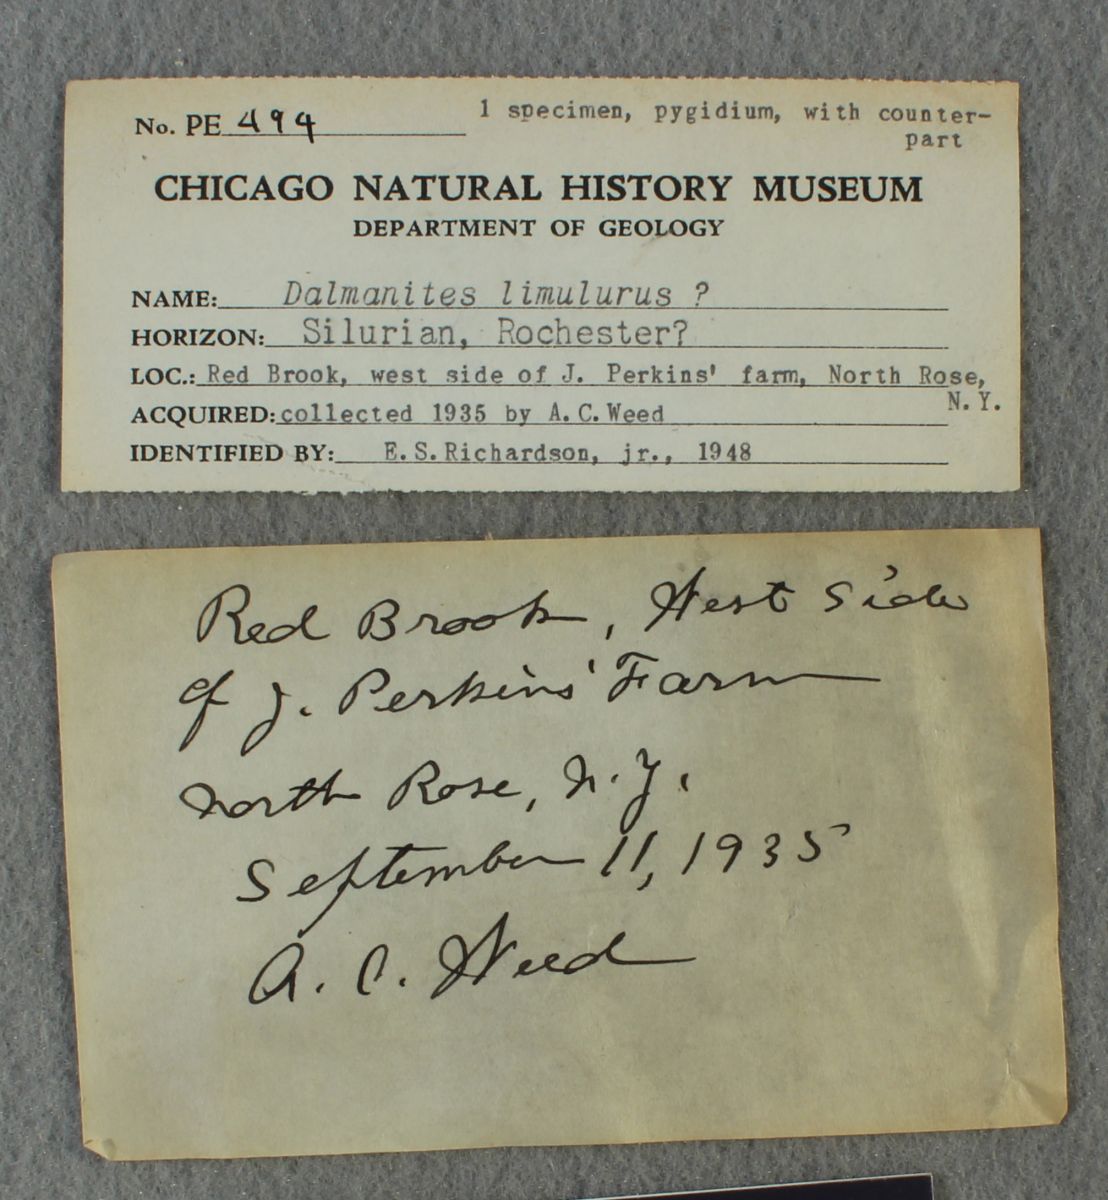 No. PE 494
1 specimen, pygidium, with counter-
part
CHICAGO NATURAL HISTORY MUSEUM
DEPARTMENT OF GEOLOGY
NAME: Dalmanites limulurus ?
HORIZON: Silurian, Rochester?
LOC.: Red Brook, west side of J. Perkins' farm, North Rose,
N.Y.
ACQUIRED: collected 1935 by A.C.Weed
IDENTIFIED BY: E.S.Richardson, jr., 1948
Red Brook, West Side
of J. Perkins' Farm
North Rose, N.Y.
September 11, 1935
A. C. Weed